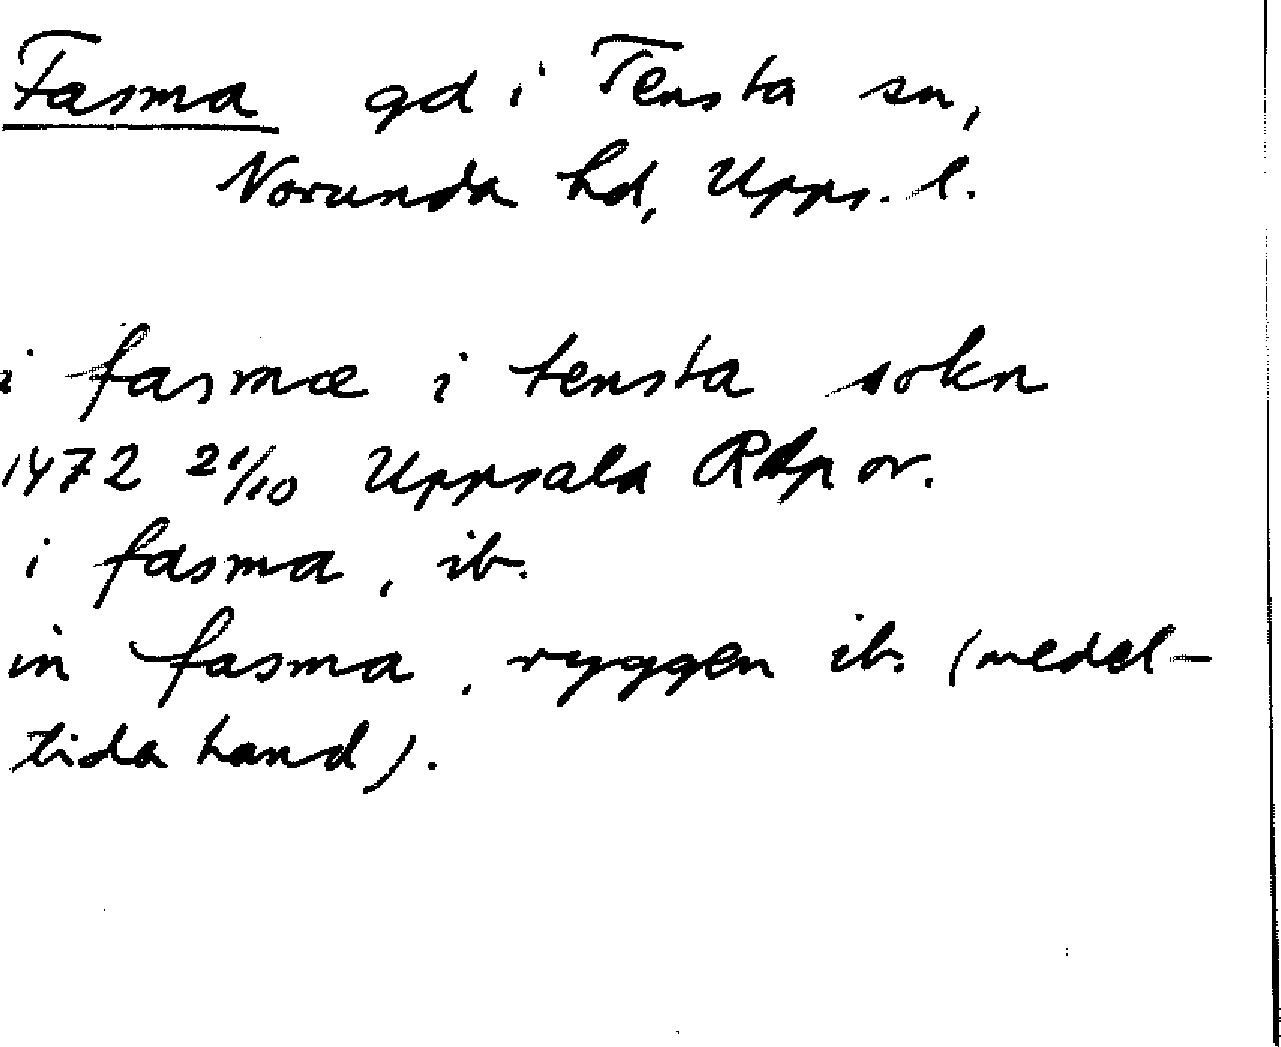 Fasma gd i Tensta sn,
Norunda hd, Upps. l.
i fasmæ i tensta sokn
1472 21/10 Uppsala RAp or.
i fasma, ib.
in fasma, ryggen ib. (medel-
tida hand).